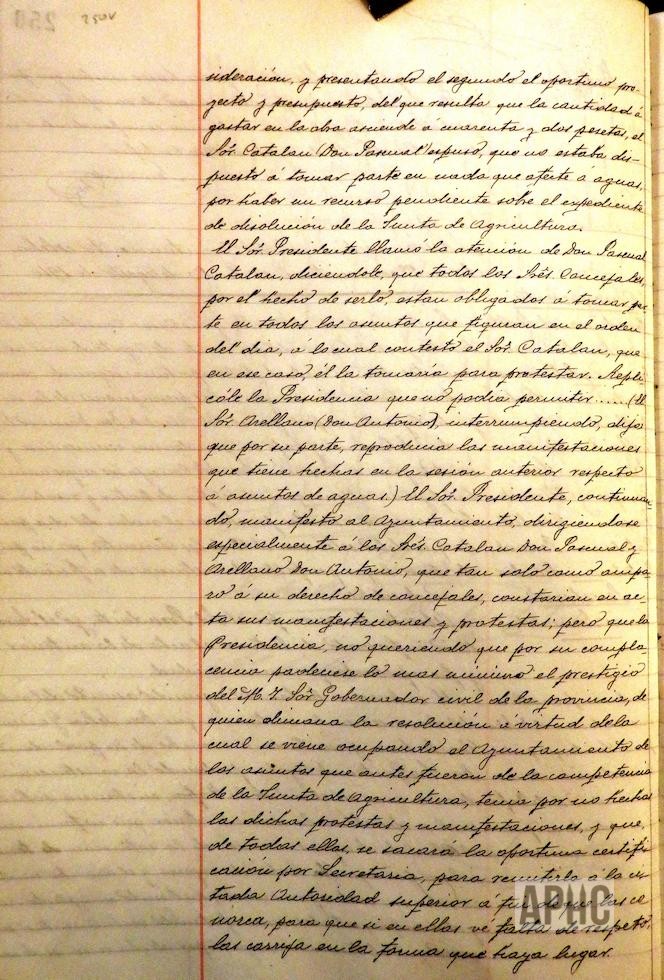 250V
sideración, y presentando el segundo el oportuno pro-
yecto y presupuesto, del que resulta que la cantidad á
gastar en la obra asciende á cuarenta y dos pesetas, el
Sór. Catalan (Don Pascual) espuso, que no estaba dis-
puesto á tomar parte en nada que afecte a aguas,
por haber un recurso pendiente sobre el expediente
de disolución de la Junta de Agricultura.
El Sór. Presidente llamó la atención de Don Pascual
Catalan, diciendole, que todos los Srés. Concejales,
por el hecho de serlo, estan obligados á tomar par-
te en todos los asuntos que figuran en el orden
del dia, á lo cual contestó el Sór. Catalan, que
en ese caso, él la tomaria para protestar. Repli-
cóle la Presidencia que no podia permitir...... (El
Sór. Arellano (Don Antonio), interrumpiendo, dijo
que por su parte, reproducia las manifestaciones
que tiene hechas en la sesión anterior respecto
á asuntos de aguas.) El Sór. Presidente, continuan-
do, manifestó al Ayuntamiento, dirigiendose
especialmente á los Srés. Catalan Don Pascual y
Arellano Don Antonio, que tan solo como ampa-
ro á su derecho de concejales, constarian en ac-
ta sus manifestaciones y protestas; pero que la
Presidencia, no queriendo que por su compla-
cencia padeciese lo mas minimo el prestigio
del M. I. Sór. Gobernador civil de la provincia, de
quien dimana la resolución á virtud de la
cual se viene ocupando el Ayuntamiento de
los asuntos que antes fueron de la competencia
de la Junta de Agricultura, tenia por no hechas
las dichas protestas y manifestaciones, y que,
de todas ellas, se sacará la oportuna certifi-
cación por Secretaria, para remitirla á la ci-
tada Autoridad superior á fin de que las co-
nozca, para que si en ellas vé falta de respeto,
las corrija en la forma que haya lugar.
APHC